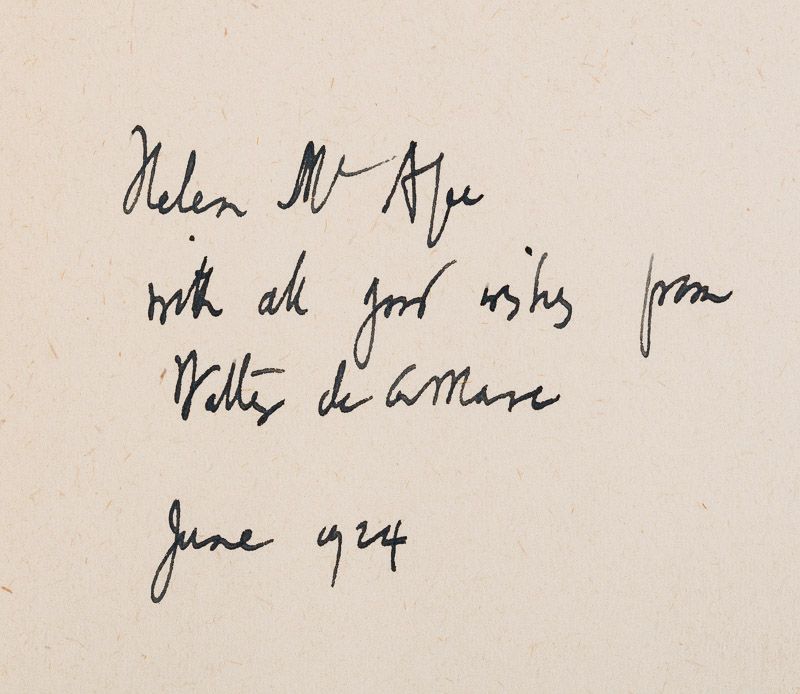 Helen Mc Afee
with all good wishes from
Walter de la Mare
June 1924